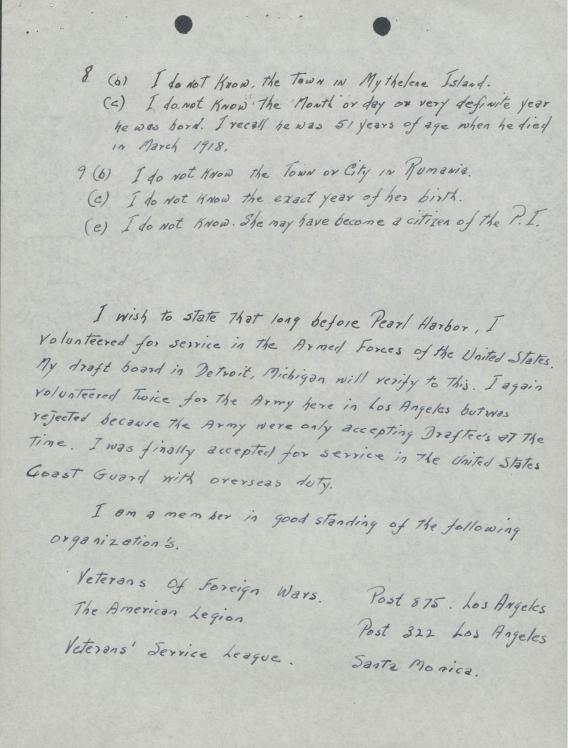 8 (b) I do not Know, the Town in Mythelene Island.
(c) I do not Know the Month or day or very definite year
he was born. I recall he was 51 years of age when he died
in March 1918.
9 (b) I do not Know the Town or City in Rumania.
(c) I do not Know the exact year of her birth.
(e) I do not Know. She may have become a citizen of the P.I.
I wish to state that long before Pearl Harbor, I
volunteered for service in the Armed Forces of the United States.
My draft board in Detroit, Michigan will verify to this. I again
volunteered Twice for the Army here in Los Angeles but was
rejected because the Army were only accepting Draftee's at the
time. I was finally accepted for service in the United States
Coast Guard with overseas duty.
I am a member in good standing of the following
organization's.
Veterans Of Foreign Wars. Post 875. Los Angeles
The American Legion Post 322 Los Angeles
Veterans' Service League. Santa Monica.